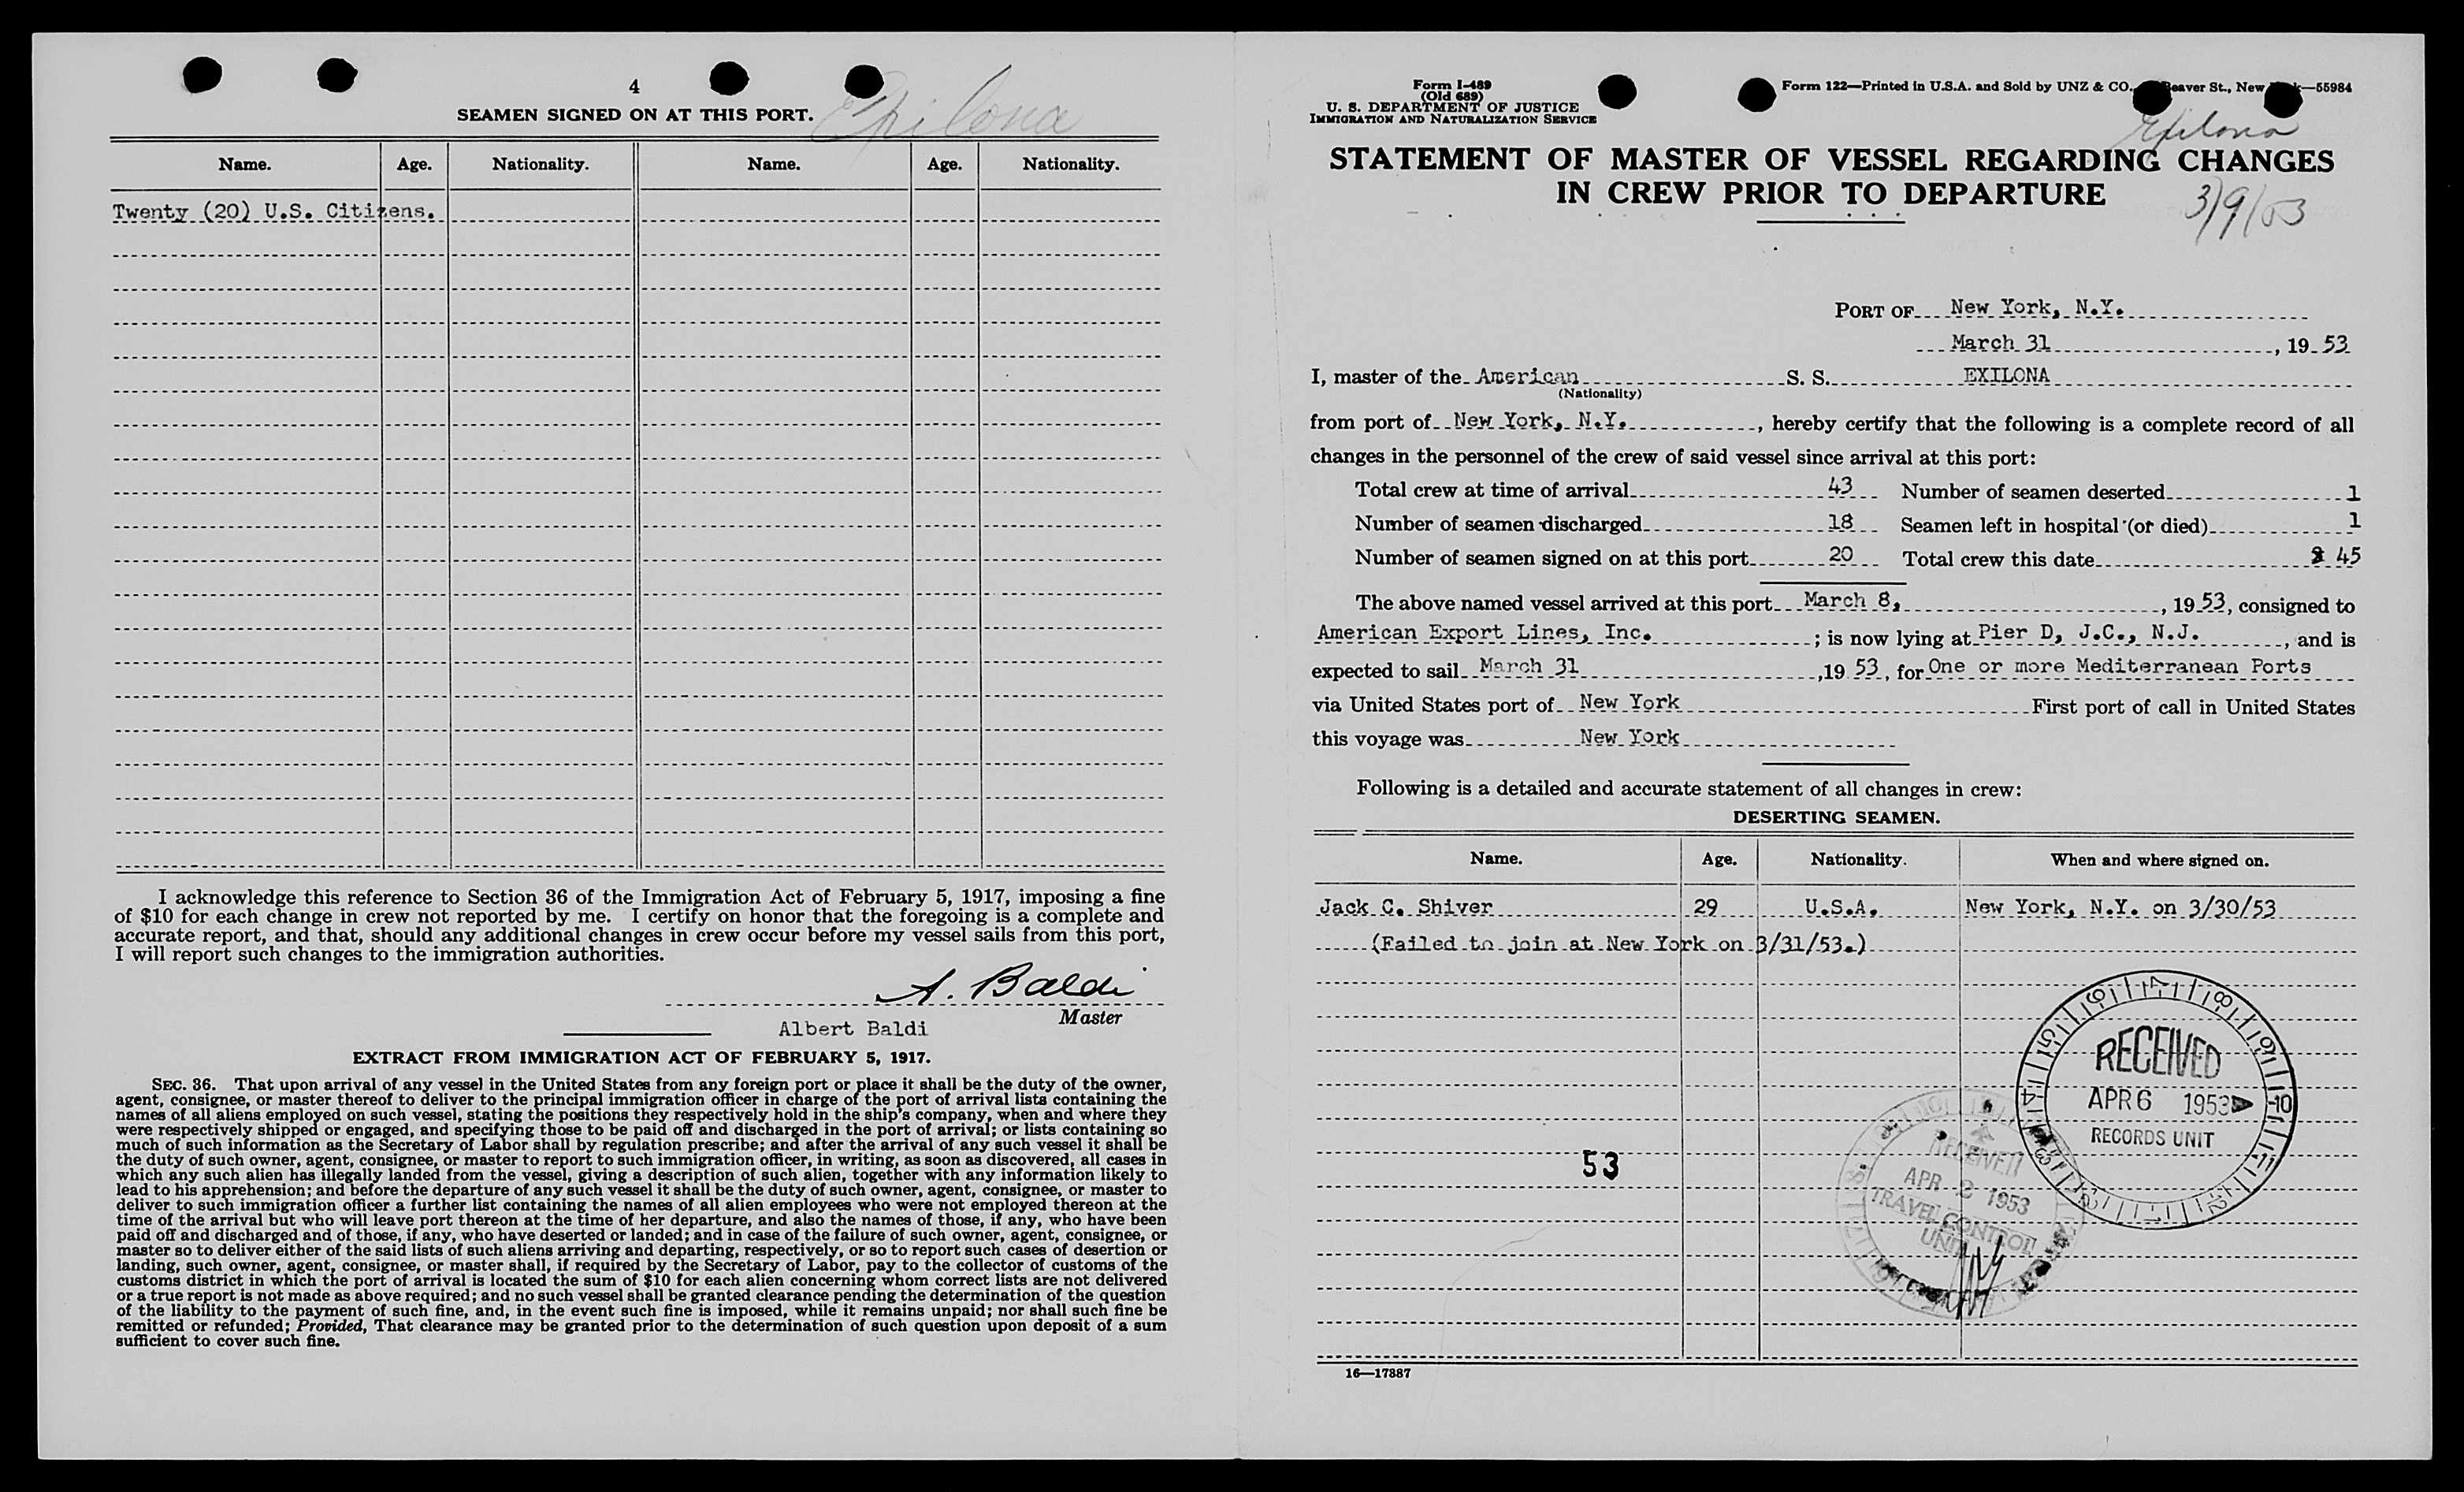 4
SEAMEN SIGNED ON AT THIS PORT.
Exilona
Name. Age. Nationality. Name. Age. Nationality.
Twenty (20) U.S. Citizens.
I acknowledge this reference to Section 36 of the Immigration Act of February 5, 1917, imposing a fine
of $10 for each change in crew not reported by me. I certify on honor that the foregoing is a complete and
accurate report, and that, should any additional changes in crew occur before my vessel sails from this port,
I will report such changes to the immigration authorities.
A. Baldi
Master
Albert Baldi
EXTRACT FROM IMMIGRATION ACT OF FEBRUARY 5, 1917.
SEC. 36. That upon arrival of any vessel in the United States from any foreign port or place it shall be the duty of the owner,
agent, consignee, or master thereof to deliver to the principal immigration officer in charge of the port of arrival lists containing the
names of all aliens employed on such vessel, stating the positions they respectively hold in the ship's company, when and where they
were respectively shipped or engaged, and specifying those to be paid off and discharged in the port of arrival; or lists containing so
much of such information as the Secretary of Labor shall by regulation prescribe; and after the arrival of any such vessel it shall be
the duty of such owner, agent, consignee, or master to report to such immigration officer, in writing, as soon as discovered, all cases in
which any such alien has illegally landed from the vessel, giving a description of such alien, together with any information likely to
lead to his apprehension; and before the departure of any such vessel it shall be the duty of such owner, agent, consignee, or master to
deliver to such immigration officer a further list containing the names of all alien employees who were not employed thereon at the
time of the arrival but who will leave port thereon at the time of her departure, and also the names of those, if any, who have been
paid off and discharged and of those, if any, who have deserted or landed; and in case of the failure of such owner, agent, consignee, or
master so to deliver either of the said lists of such aliens arriving and departing, respectively, or so to report such cases of desertion or
landing, such owner, agent, consignee, or master shall, if required by the Secretary of Labor, pay to the collector of customs of the
customs district in which the port of arrival is located the sum of $10 for each alien concerning whom correct lists are not delivered
or a true report is not made as above required; and no such vessel shall be granted clearance pending the determination of the question
of the liability to the payment of such fine, and, in the event such fine is imposed, while it remains unpaid; nor shall such fine be
remitted or refunded; Provided, That clearance may be granted prior to the determination of such question upon deposit of a sum
sufficient to cover such fine.
Form I-489
(Old 689)
U. S. DEPARTMENT OF JUSTICE
IMMIGRATION AND NATURALIZATION SERVICE
Form 122—Printed in U.S.A. and Sold by UNZ & CO., Beaver St., New —55984
Exilona
STATEMENT OF MASTER OF VESSEL REGARDING CHANGES
IN CREW PRIOR TO DEPARTURE
3/9/53
PORT OF New York, N.Y.
March 31, 19 53
I, master of the American S. S. EXILONA
(Nationality)
from port of New York, N.Y., hereby certify that the following is a complete record of all
changes in the personnel of the crew of said vessel since arrival at this port:
Total crew at time of arrival 43 Number of seamen deserted 1
Number of seamen discharged 18 Seamen left in hospital (or died) 1
Number of seamen signed on at this port 20 Total crew this date 45
The above named vessel arrived at this port March 8, , 19 53, consigned to
American Export Lines, Inc. ; is now lying at Pier D, J.C., N.J. , and is
expected to sail March 31 ,19 53, for One or more Mediterranean Ports
via United States port of New York First port of call in United States
this voyage was New York
Following is a detailed and accurate statement of all changes in crew:
DESERTING SEAMEN.
Name. Age. Nationality. When and where signed on.
Jack C. Shiver 29 U.S.A. New York, N.Y. on 3/30/53
(Failed to join at New York on 3/31/53.)
RECEIVED
APR 6 1953
RECORDS UNIT
53
RECEIVED
APR 2 1953
TRAVEL CONTROL
UNIT
16—17887